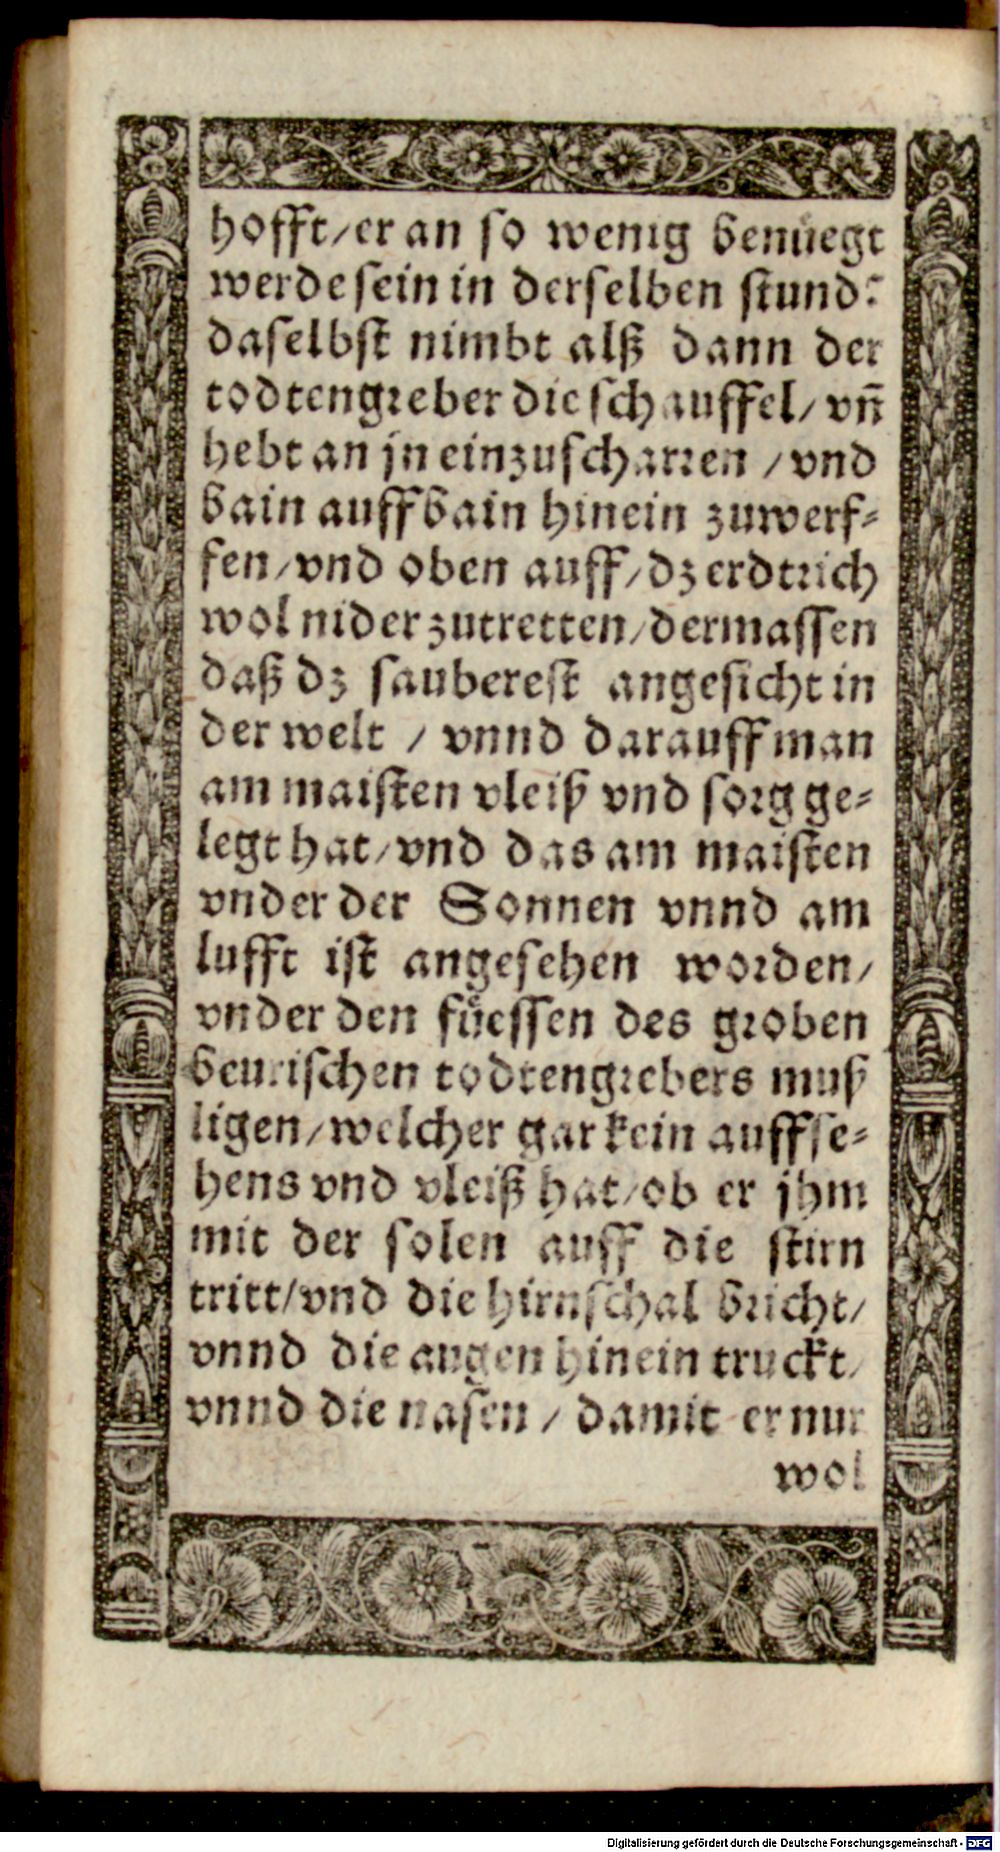 hofft/er an so wenig benuͤegt
werde sein in derselben stund?
daselbst nimbt alß dann der
todtengreber die schauffel/ vn̄
hebt an jn einzuscharren / vnd
bain auff bain hinein zuwerf-
fen/vnd oben auff/dz erdtrich
wol nider zutretten/dermassen
daß dz sauberest angesicht in
der welt / vnnd darauff man
am maisten vleiß vnd sorg ge-
legt hat/vnd das am maisten
vnder der Sonnen vnnd am
lufft ist angesehen worden/
vnder den fuͤessen des groben
beurischen todtengrebers muß
ligen/welcher gar kein auffse-
hens vnd vleiß hat/ob er jhm
mit der solen auff die stirn
tritt/vnd die hirnschal bricht/
vnnd die augen hinein truckt/
vnnd die nasen / damit er nur
wol
Digitalisierung gefördert durch die Deutsche Forschungsgemeinschaft - DFG